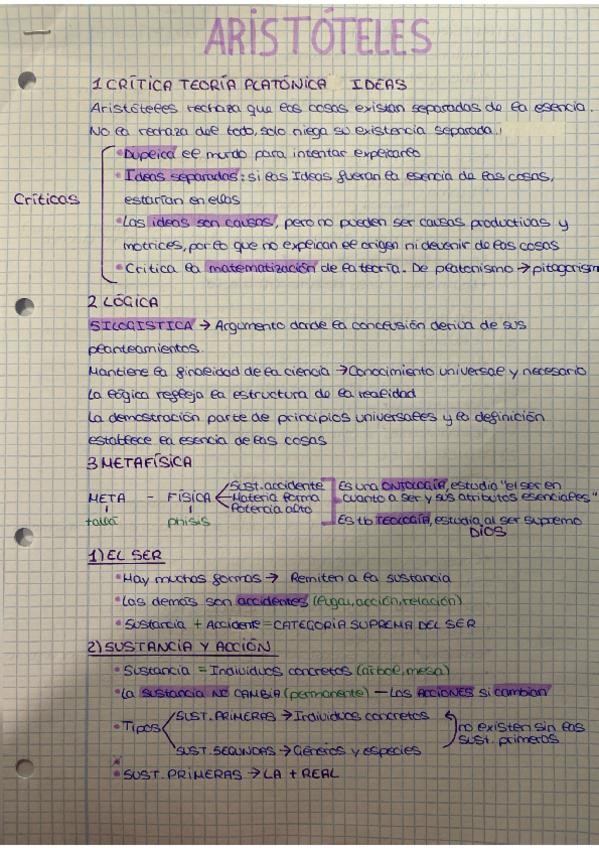 ARISTÓTELES
1 CRÍTICA TEORÍA PLATÓNICA IDEAS
Aristóteles rechaza que las cosas existan separadas de la esencia.
No la rechaza del todo, solo niega su existencia separada.
Críticas
• Duplica el mundo para intentar explicarlo
• Ideas separadas: si las Ideas fueran la esencia de las cosas,
estarían en ellas
• Las ideas son causas, pero no pueden ser causas productivas y
motrices, por lo que no explican el origen ni devenir de las cosas
• Critica la matematización de la teoría. De platonismo → pitagorism
2 LÓGICA
SILOGISTICA → Argumento donde la conclusión deriva de sus
planteamientos.
Mantiene la finalidad de la ciencia → Conocimiento universal y necesario
La lógica refleja la estructura de la realidad
La demostración parte de principios universales y la definición
establece la esencia de las cosas
3 METAFÍSICA
META - FÍSICA
phisis
Sust. accidente
Materia forma
Potencia acto
Es una ONTOLOGÍA, estudia "el ser en
cuanto a ser y sus atributos esenciales"
Es tb TEOLOGÍA, estudia al ser supremo
DIOS
1) EL SER
• Hay muchas formas → Remiten a la sustancia
• Las demás son accidentes (lugar, acción, relación)
• Sustancia + Accidente = CATEGORÍA SUPREMA DEL SER
2) SUSTANCIA Y ACCIÓN
• Sustancia = Individuos concretos (árbol, mesa)
• La sustancia NO CAMBIA (permanente) — Las ACCIONES si cambian
• Tipos
SUST. PRIMERAS → Individuos concretos
SUST. SEGUNDAS → Géneros y especies
no existen sin las
sust. primeras
• SUST. PRIMERAS → LA + REAL